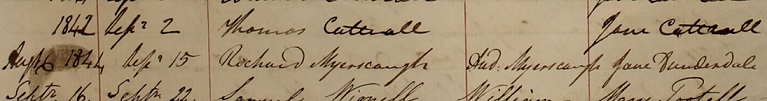 1842 Sepr 2 Thomas Catterall Jane Catterall
Augt 6 1844 Sepr 15 Richard Myerscough Myerscough Jane Dunderdale
Septr 16 Septr 22 Samuel William Mary